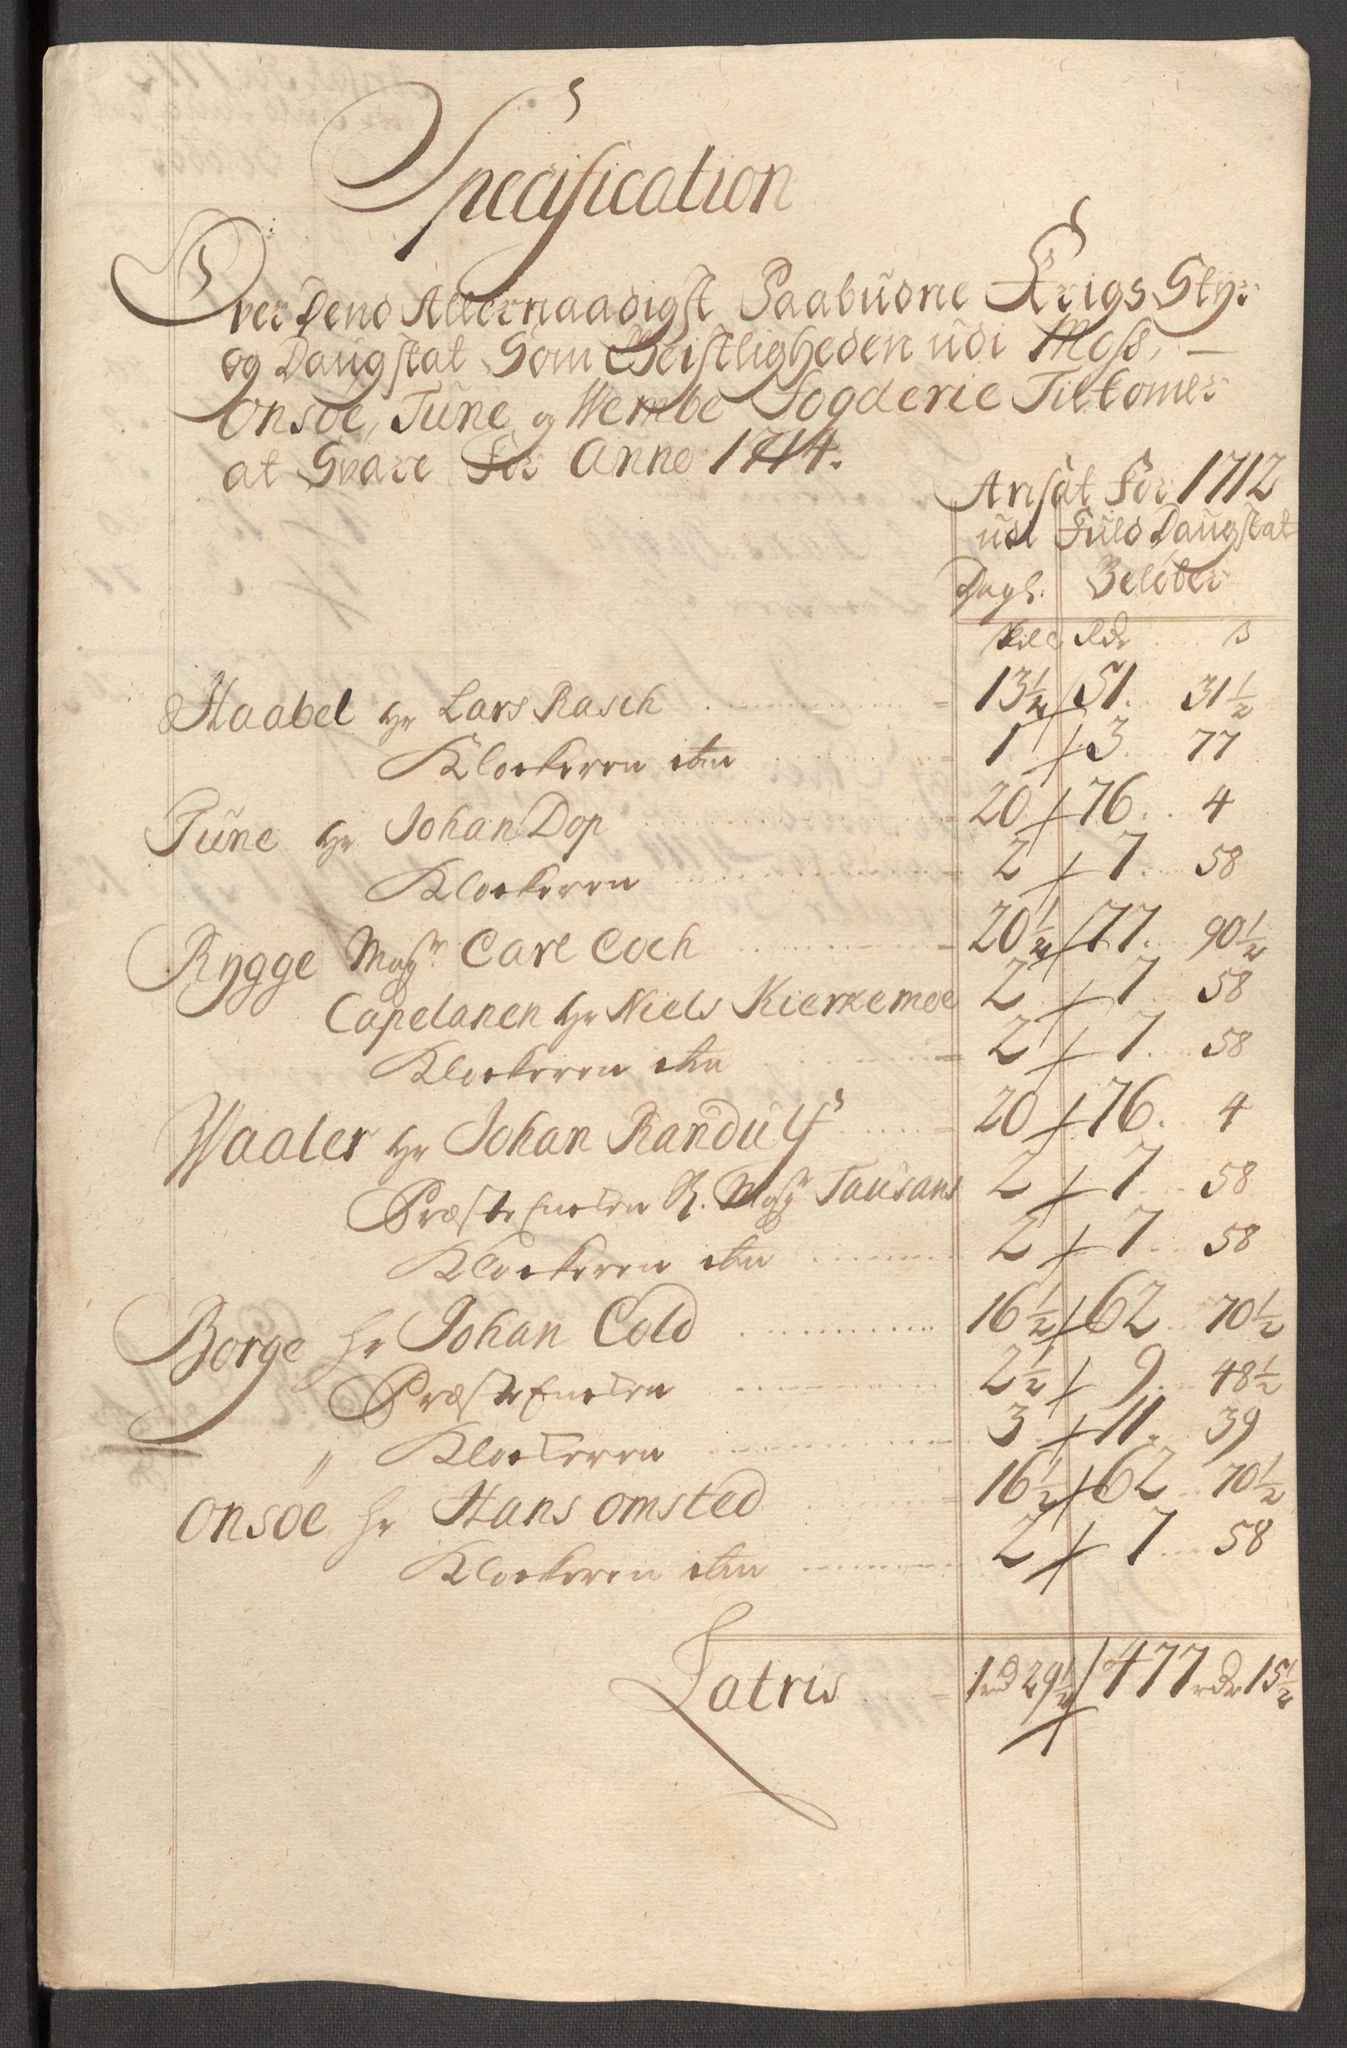 Specification
Over Dend Allernaadigst Paabudne Krigs Styr
og Daugstat Som Geistligheden udi Moss,
Onsøe, Tune, og Wembe Fogderie Tilkomer
at Svare For Anno 1714.
Ansat For 1712
udi Fuld Daugstat
Dagl. Beløber
skill Rdr ß
Haabel Hr Lars Rasch 13½ 51. 31½
Klockeren 1 3 77
Tune Hr Johan Dop 20 76. 4
Klockeren 2 7. 58
Rygge Magr Carl Coch 20½ 77. 90½
Capelanen Hr Niels Kierkemoe 2 7 58
Klockeren 2 7. 58
Waaler Hr Johan Randulf 20 76. 4
Præste Enken S. Magr Tausans 2 7. 58
Klockeren 2 7. 58
Borge Hr Johan Cold 16½ 62 70½
Præste Encken 2½ 9. 48½
" Klockeren 3 11. 39
Onsøe Hr Hans Omsted 16½ 62 70½
Klockeren 2 7 58
Latris 1rd 29½ 477rdr 15½